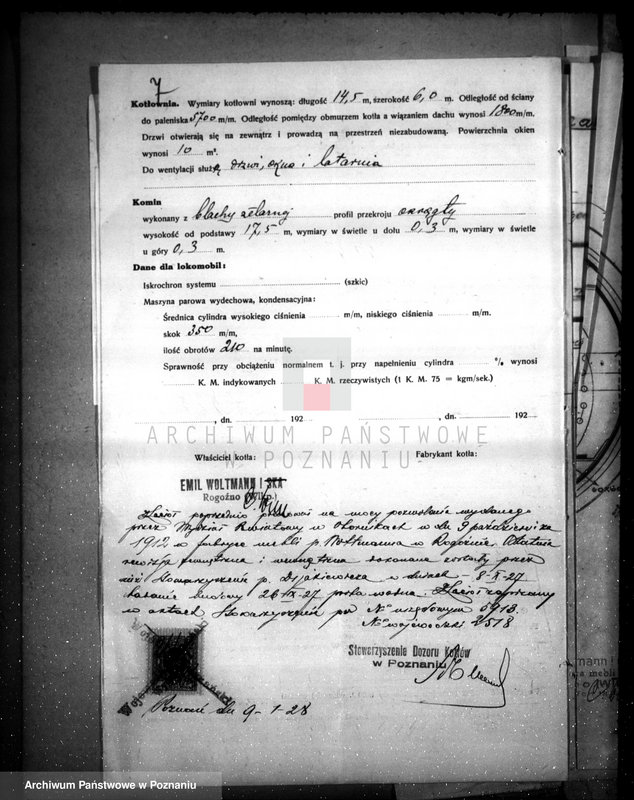 7
Kotłownia. Wymiary kotłowni wynoszą: długość 14,5 m, szerokość 6,0 m. Odległość od ściany
do paleniska 5700 m/m. Odległość pomiędzy obmurzem kotła a wiązaniem dachu wynosi 1800 m/m.
Drzwi otwierają się na zewnątrz i prowadzą na przestrzeń niezabudowaną. Powierzchnia okien
wynosi 10 m².
Do wentylacji służą drzwi, okna i latarnia
Komin
wykonany z blachy żelaznej profil przekroju okrągły
wysokość od podstawy 17,5 m, wymiary w świetle u dołu 0,3 m, wymiary w świetle
u góry 0,3 m.
Dane dla lokomobil:
Iskrochron systemu (szkic)
Maszyna parowa wydechowa, kondensacyjna:
Średnica cylindra wysokiego ciśnienia m/m, niskiego ciśnienia m/m.
skok 350 m/m,
ilość obrotów 210 na minutę.
Sprawność przy obciążeniu normalnem t. j. przy napełnieniu cylindra % wynosi
K. M. indykowanych K. M. rzeczywistych (1 K. M. 75 = kgm/sek.)
, dn. 192 , dn. 192
ARCHIWUM PAŃSTWOWE
W POZNANIU
Właściciel kotła: Fabrykant kotła:
EMIL WOLTMANN I SKA
Rogoźno (Wlkp.)
Kocioł poprzednio na mocy pozwolenia wydanego
przez Wydział Powiatowy w Obornikach w dn. 9 października
1912 w fabryce mebli p. Woltmanna w Rogoźnie. Ostatnia
rewizja zewnętrzna i wewnętrzna dokonana została przez
inż Stowarzyszenia p. w dniach - 8-X-27
badanie 26-IX-27 próba wodna. Kocioł zapisany
w aktach Stowarzyszenia pod No urzędowym 5918
No wojewódzki 2/518
Stowarzyszenie Dozoru Kotłów
w Poznaniu
Poznań dn 9-1-28
Archiwum Państwowe w Poznaniu